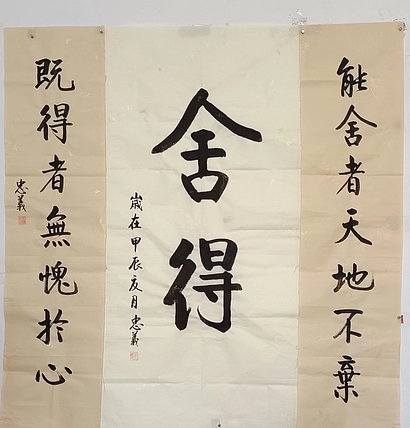 能舍者天地不棄
舍得
歲在甲辰夏月忠義
既得者無愧於心
忠義